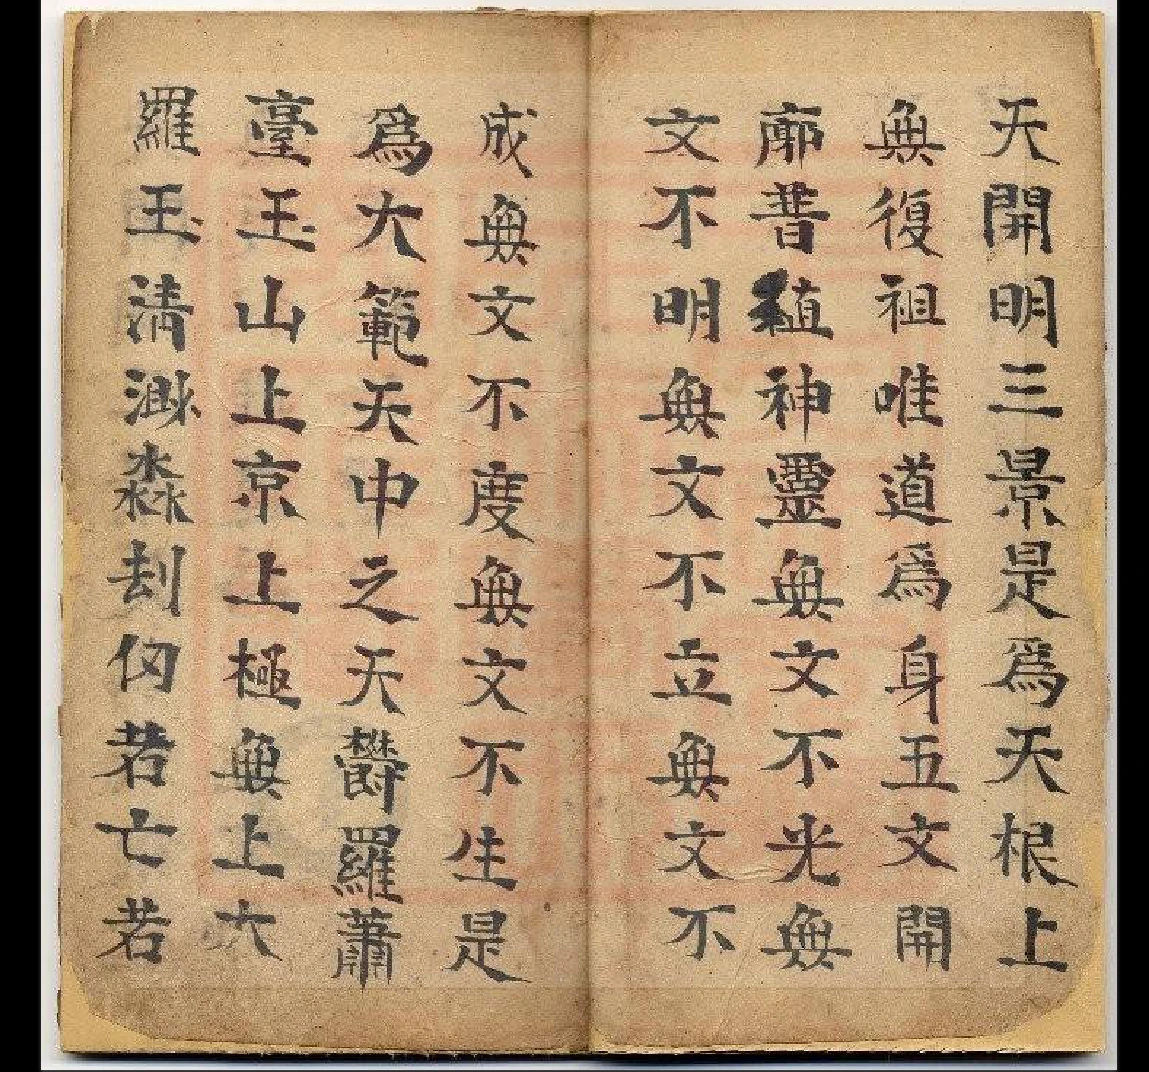 天開明三景是爲天根上
無復祖唯道爲身五文開
廓普植神靈無文不光無
文不明無文不立無文不
成無文不度無文不生是
爲大範天中之天欝羅蕭
臺玉山上京上極無上大
羅玉清渺淼刦仞若亡若